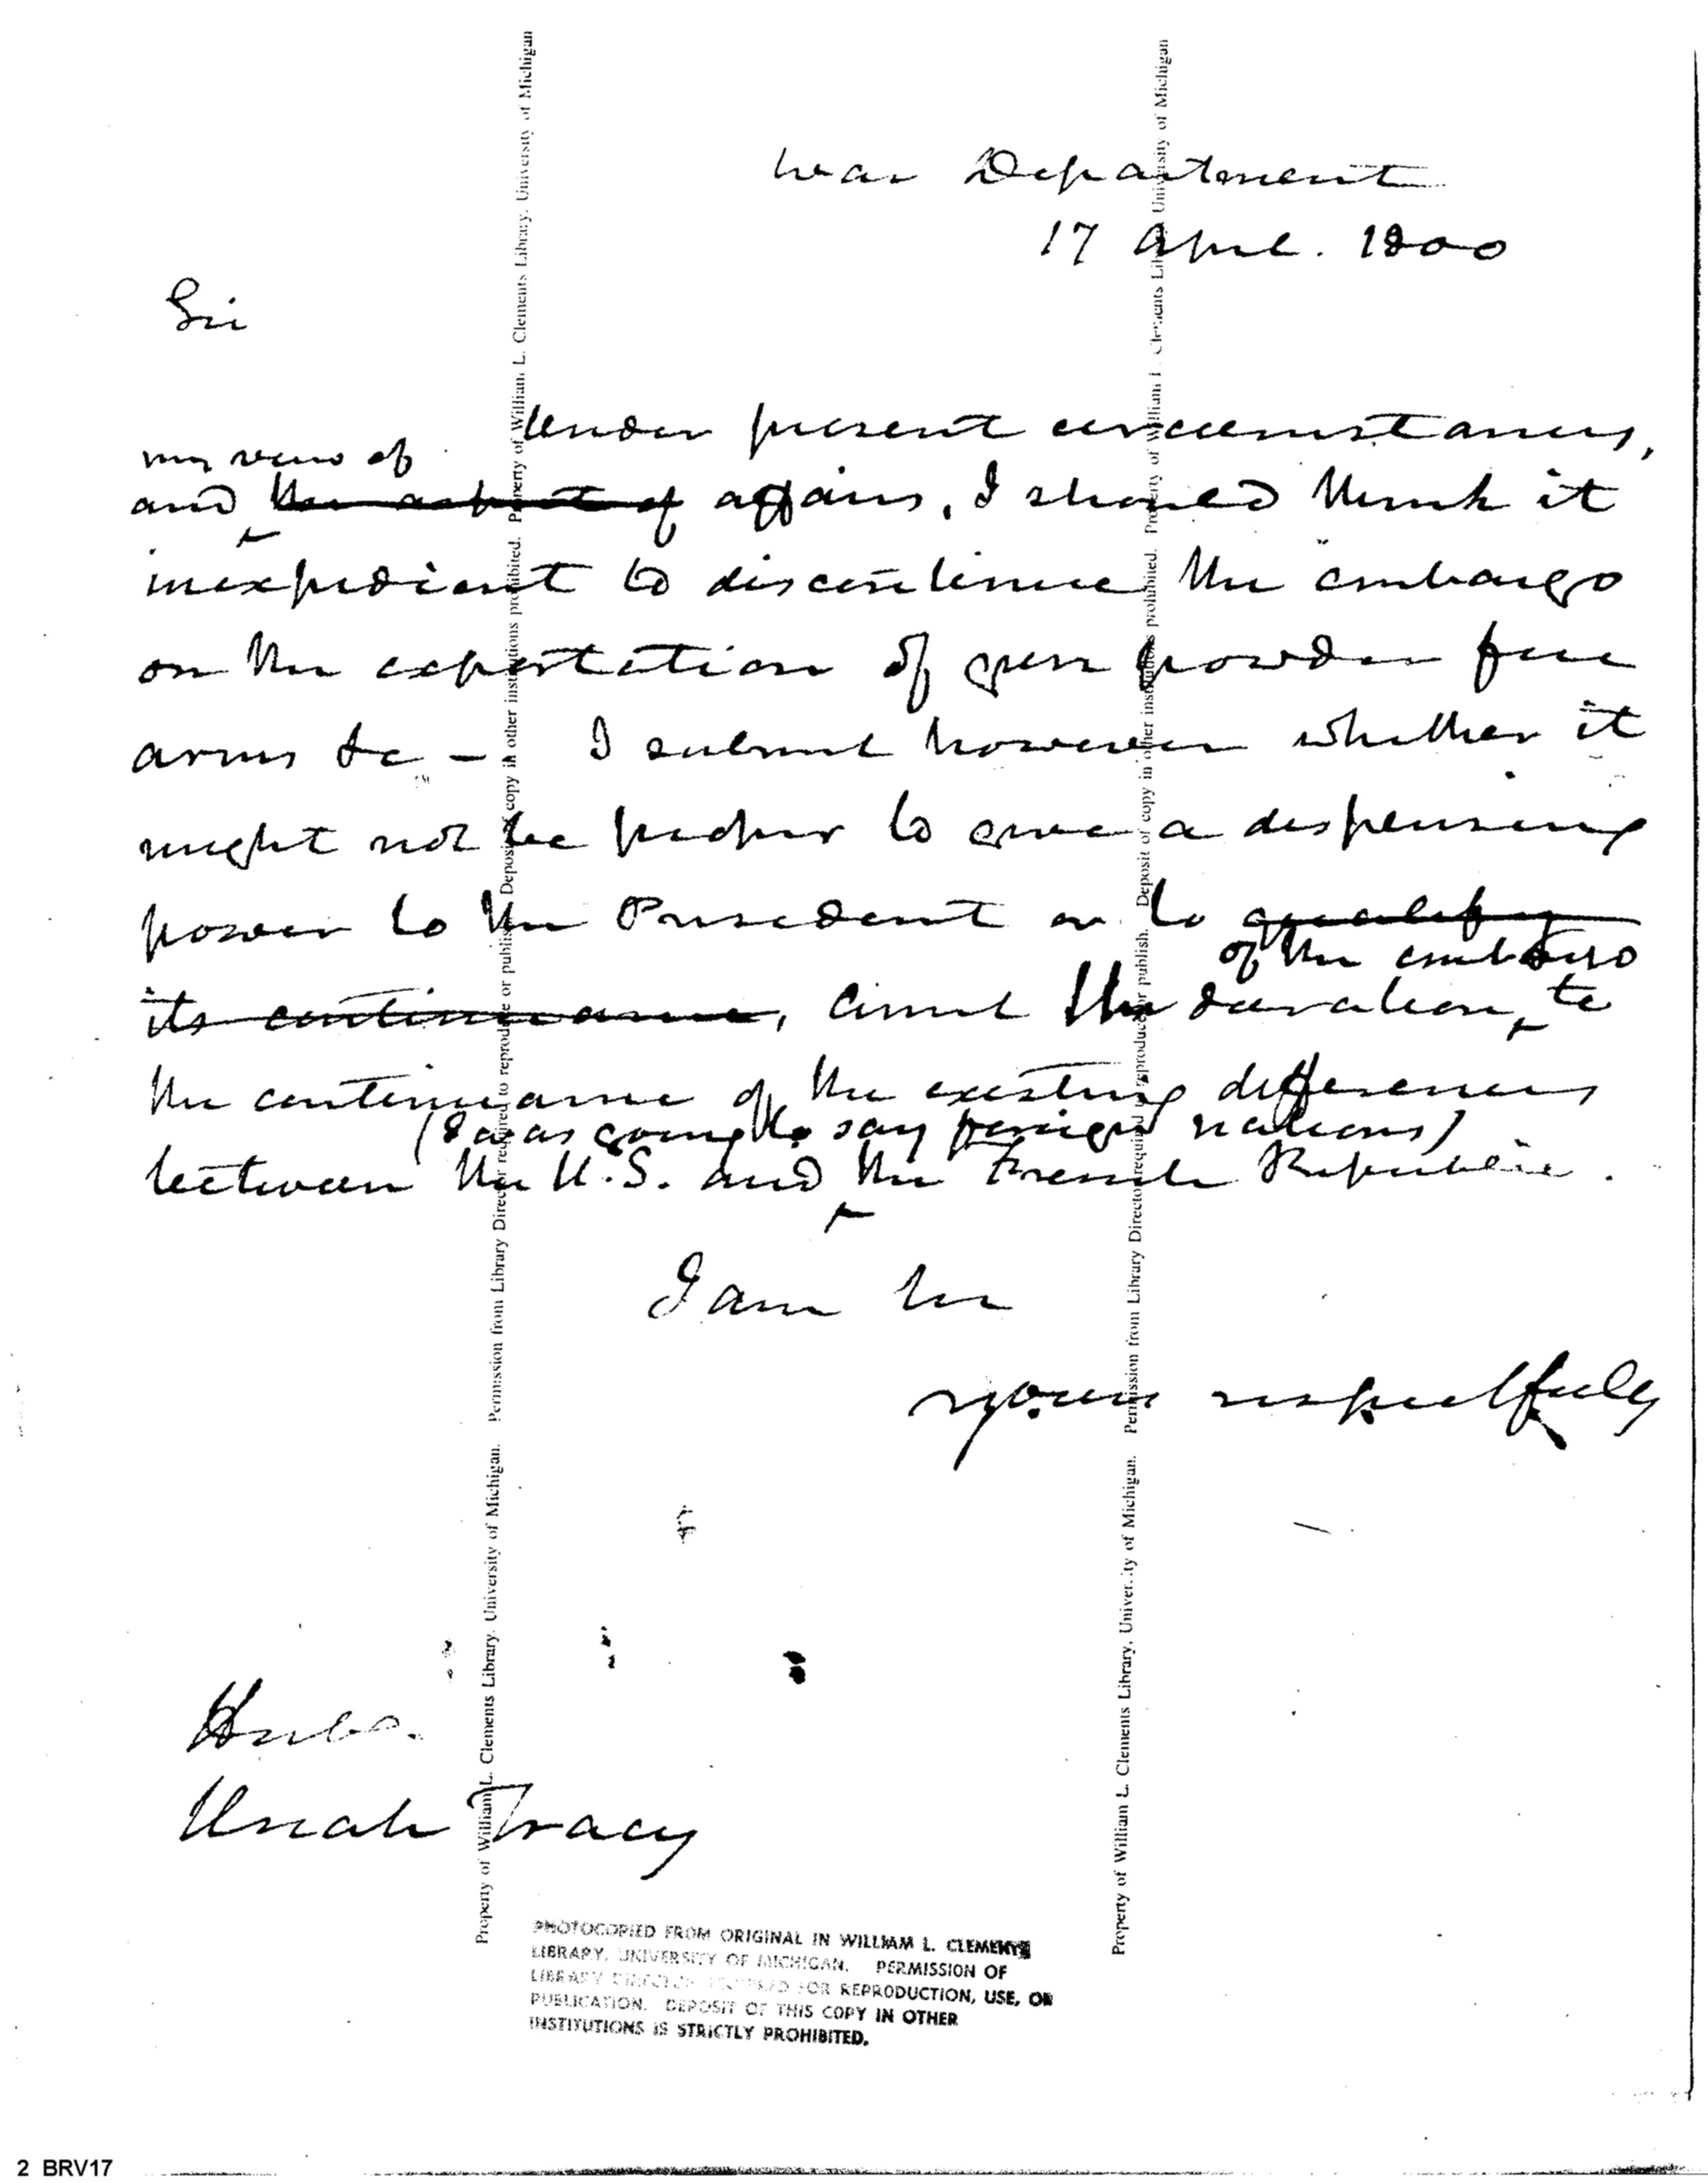 War Department
17 April. 1800
Sir
Under present circumstances,
my view of
and the aspect of affairs, I should think it
inexpedient to discontinue the embargo
on the exportation of gun powder fire
arms &c – I submit however whether it
might not be proper to give a dispensing
power to the President or to qualify
of the embargo
its continuance, limit the duration, to
the continuance of the existing differences
(I was going to say foreign nations)
between the U.S. and the French Republic.
I am
yours respectfully
Uriah Tracy
Property of William L. Clements Library, University of Michigan. Permission from Library Director required to reproduce or publish. Deposit of copy in other institutions prohibited. Property of William L. Clements Library, University of Michigan
Property of William L. Clements Library, University of Michigan. Permission from Library Director required to reproduce or publish. Deposit of copy in other institutions prohibited. Property of William L. Clements Library, University of Michigan
PHOTOCOPIED FROM ORIGINAL IN WILLIAM L. CLEMENTS
LIBRARY, UNIVERSITY OF MICHIGAN. PERMISSION OF
LIBRARY DIRECTOR REQUIRED FOR REPRODUCTION, USE, OR
PUBLICATION. DEPOSIT OF THIS COPY IN OTHER
INSTITUTIONS IS STRICTLY PROHIBITED.
2 BRV17